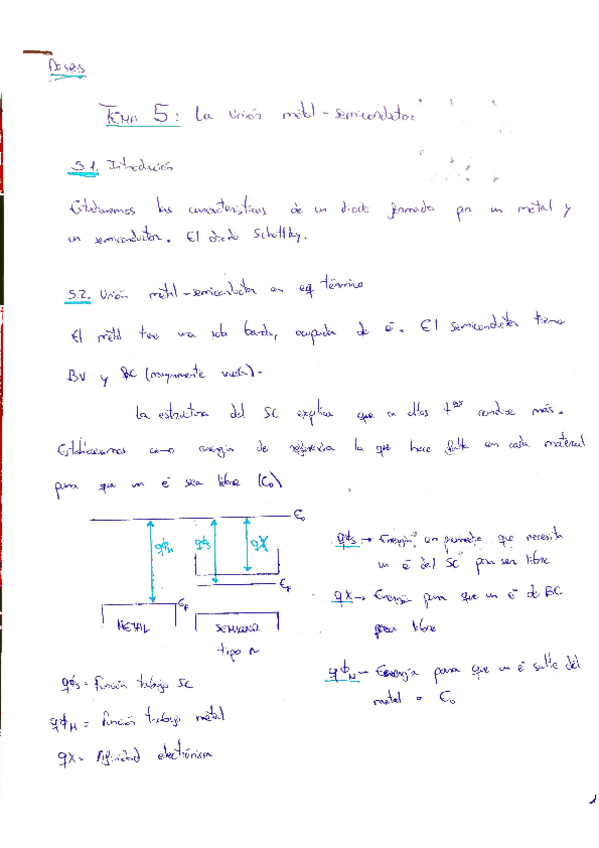 Tema 5: La Unión metal-semiconductor
5.1. Introducción
Estudiaremos las características de un diodo formado por un metal y
un semiconductor. El diodo Schottky.
5.2. Unión metal-semiconductor en eq. térmico
El metal tiene una sola banda, ocupada de é. El semiconductor tiene
BV y BC (mayormente vacía).
La estructura del SC explica que a altas tªs conduce más.
Establecemos como energía de referencia la que hace falta en cada material
para que un é sea libre (E₀)
E₀
qϕM
qϕS
qX
EF
EF
METAL
SEMICOND.
tipo n
qϕS → Energía en promedio que necesita
un é del SC para ser libre
qX → Energía para que un é de BC
sea libre
qϕM → Energía para que un é salte del
metal a E₀
qϕS = Función trabajo SC
qϕM = Función trabajo metal
qX = Afinidad electrónica
1